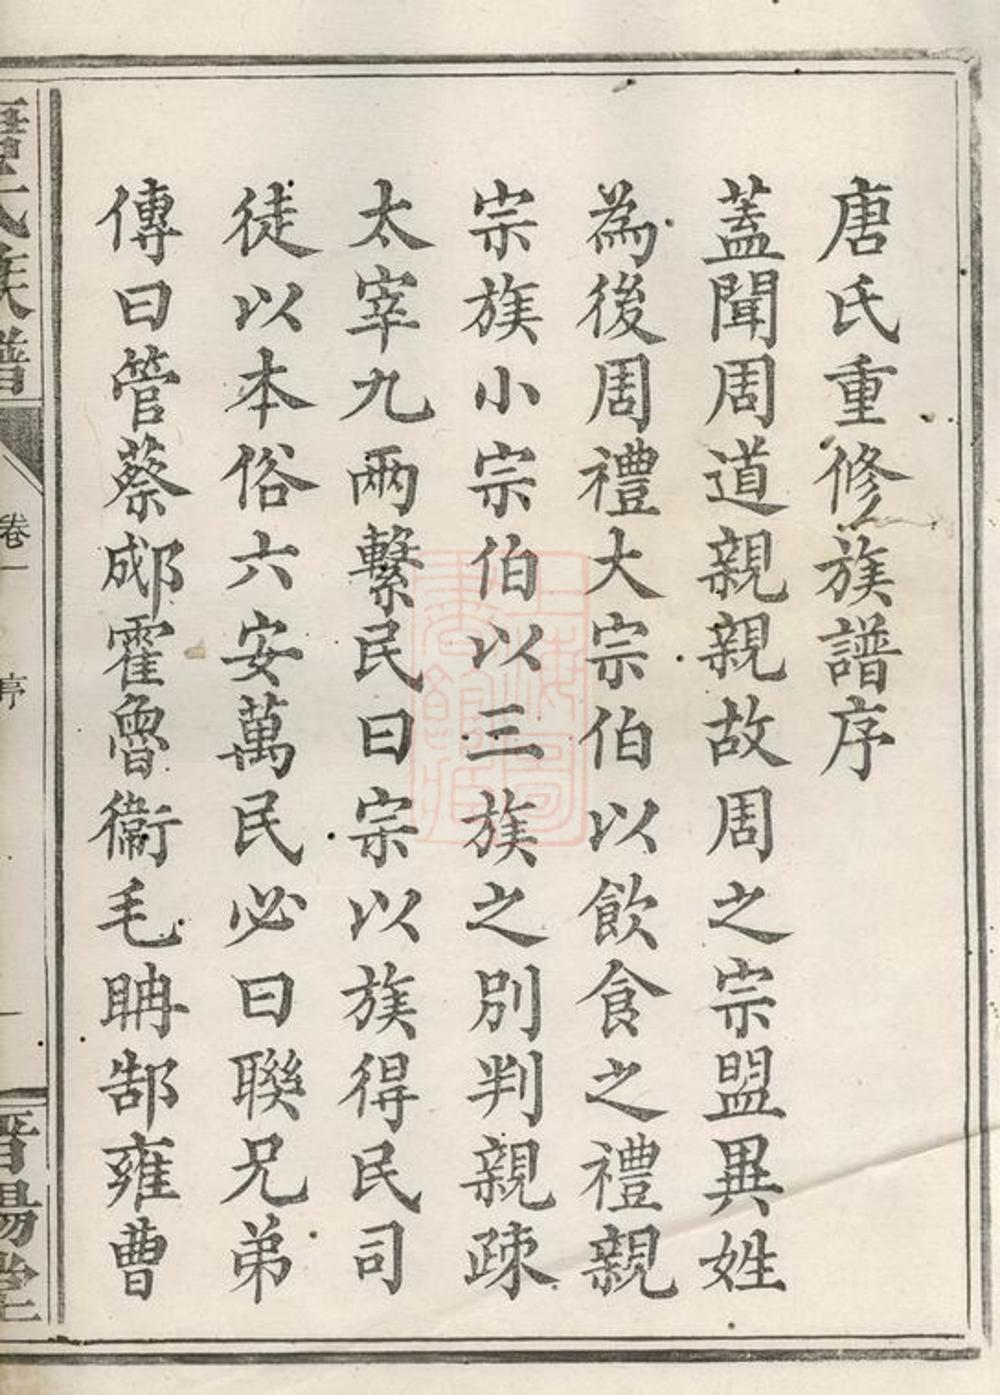 唐氏重修族譜序
蓋聞周道親親故周之宗盟異姓
為後周禮大宗伯以飲食之禮親
宗族小宗伯以三族之別判親疎
太宰九兩繫民曰宗以族得民司
徒以本俗六安萬民必曰聯兄弟
傳曰管蔡郕霍魯衞毛聃郜雍曹
唐氏族譜
卷一
序
一
晉陽堂